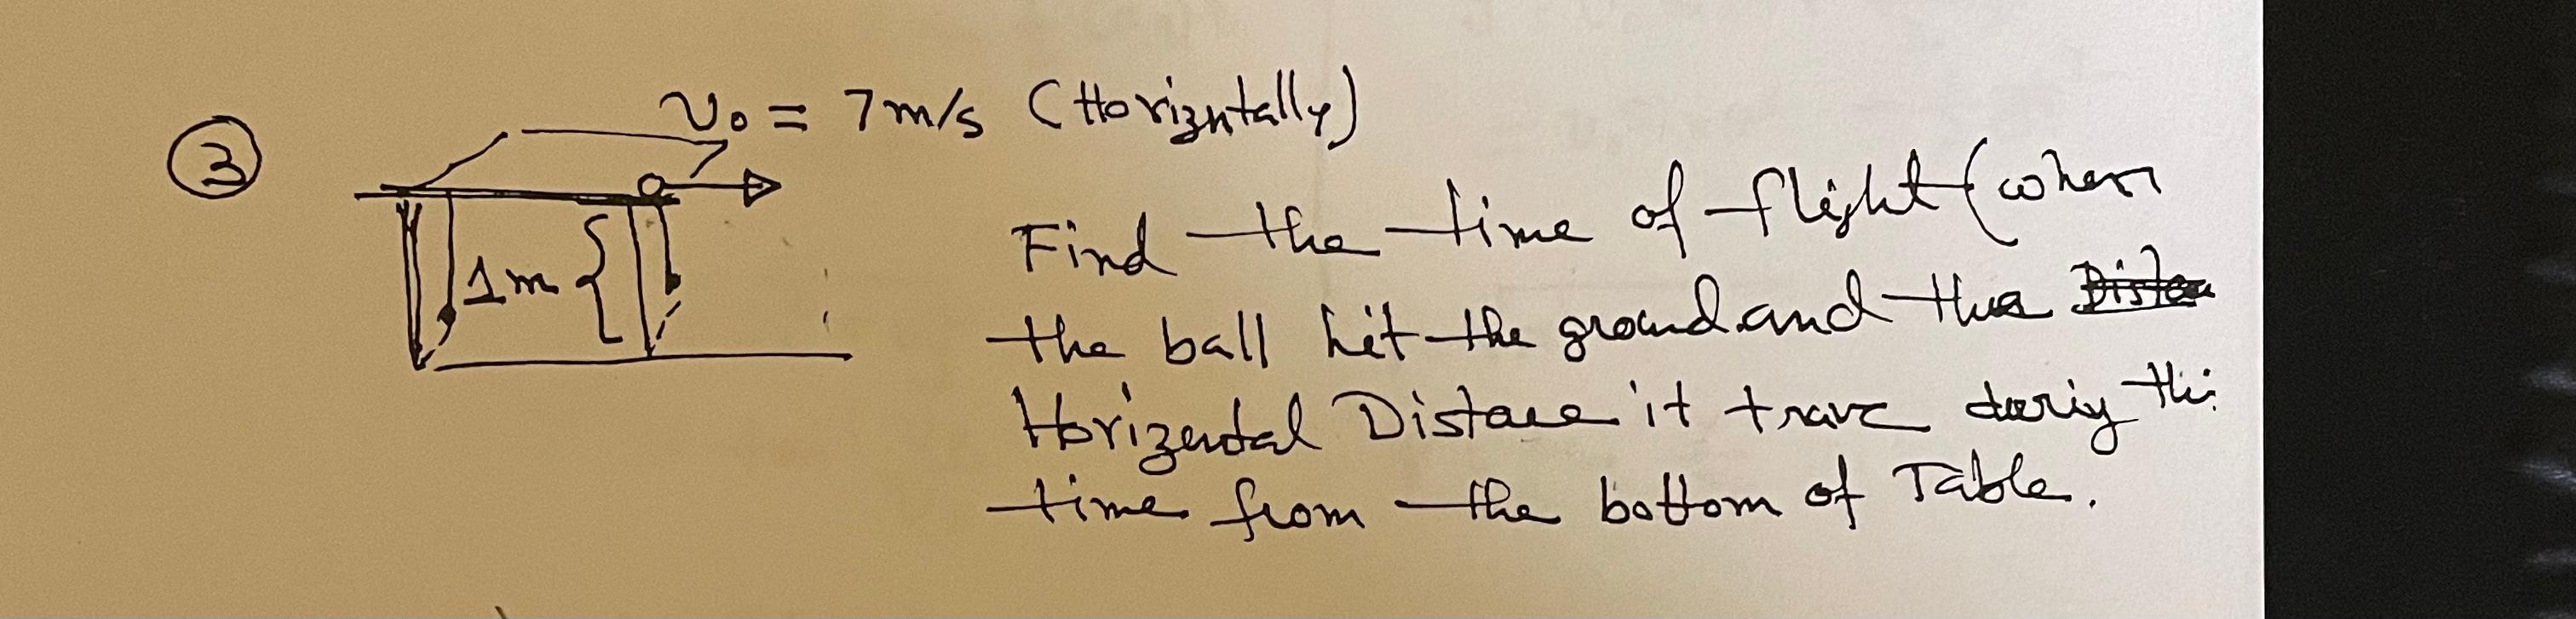 ③
v₀ = 7 m/s (Horizntally)
1m
Find the time of flight (when
the ball hit the ground and the Dista
Horizental Distace it trave durig thi
time from the bottom of Table.